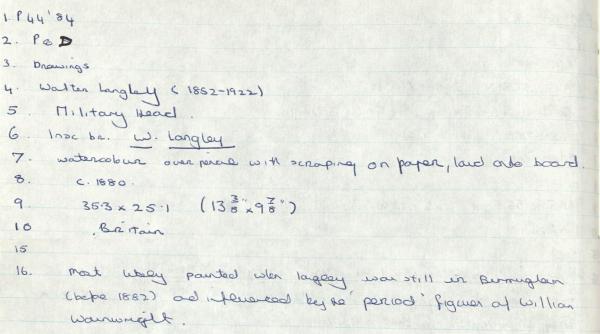 1. P 44 '84
2. P & D
3. Drawings
4. Walter Langley (1852-1922)
5 Military Head.
6 Insc br. W. Langley
7. watercolour over pencil with scraping on paper, laid onto board.
8. c. 1880.
9 35.3 x 25.1 (13 3/8" x 9 7/8")
10 Britain
15
16. Most likely painted when Langley was still in Birmingham
(before 1882) and influenced by the 'period' figures of William
Wainwright.